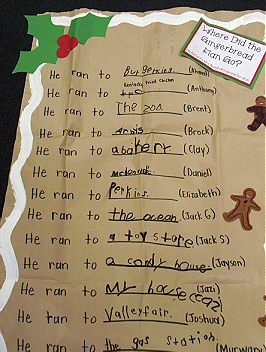 Where Did the
Gingerbread
Man Go?
He ran to Burgerkins. (Ahmed)
Kentucky Fried Chicken
He ran to (Anthony)
He ran to The zoo. (Brent)
He ran to Arbis (Brock)
He ran to a bakery (Clay)
He ran to mcdonalds. (Daniel)
He ran to Perkins. (Elizabeth)
He ran to the ocean. (Jack G)
He ran to a toy store (Jack S)
He ran to a candy house (Jayson)
He ran to My house (Jazi)
He ran to Valleyfair. (Joshua)
He ran to the gas station.